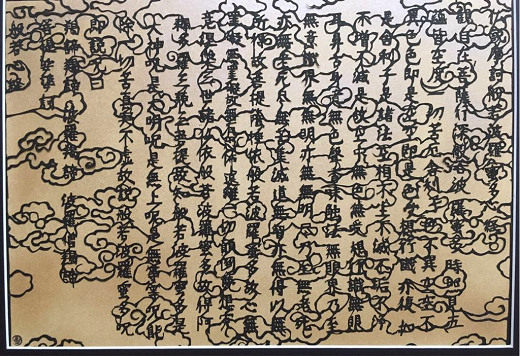 仏説摩訶般若波羅蜜多心経
観自在菩薩行深般若波羅蜜多時照見五
蘊皆空度一切苦厄舎利子色不異空空不
異色色即是空空即是色受想行識亦復如
是舎利子是諸法空相不生不滅不垢不浄
不増不減是故空中無色無受想行識無眼
耳鼻舌身意無色声香味触法無眼界乃至
無意識界無無明亦無無明尽乃至無老死
亦無老死尽無苦集滅道無智亦無得以無
所得故菩提薩埵依般若波羅蜜多故心無
罣礙無罣礙故無有恐怖遠離一切顛倒夢想究
竟涅槃三世諸仏依般若波羅蜜多故得阿
耨多羅三藐三菩提故知般若波羅蜜多是
大神呪是大明呪是無上呪是無等等呪能
除一切苦真実不虚故説般若波羅蜜多呪
即説呪曰
羯諦羯諦波羅羯諦波羅僧羯諦
菩提薩婆訶
般若心経